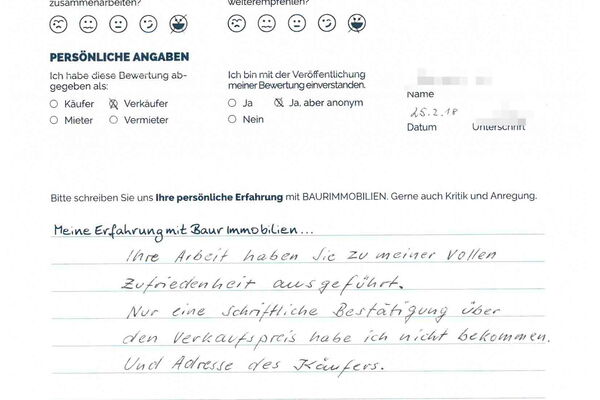 zusammenarbeiten?
weiterempfehlen?
PERSÖNLICHE ANGABEN
Ich habe diese Bewertung ab-
gegeben als:
Käufer Verkäufer
Mieter Vermieter
Ich bin mit der Veröffentlichung
meiner Bewertung einverstanden.
Ja Ja, aber anonym
Nein
Name
25.2.18
Datum Unterschrift
Bitte schreiben Sie uns Ihre persönliche Erfahrung mit BAURIMMOBILIEN. Gerne auch Kritik und Anregung.
Meine Erfahrung mit Baur Immobilien...
Ihre Arbeit haben Sie zu meiner vollen
Zufriedenheit ausgeführt.
Nur eine schriftliche Bestätigung über
den Verkaufspreis habe ich nicht bekommen.
Und Adresse des Käufers.